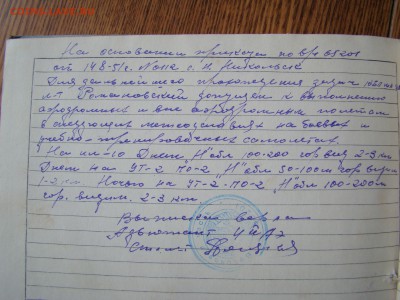 На основании приказа по вр 67 огв
от 14.8-51г. № 0112 с. н. Никольск
Для дальнейшего прохождения задач
л-т Романовский допущен к выполнению
аэродромных и вне аэродромных полетов
в следующих метеоусловиях на боевых и
учебно-тренировочных самолетах.
На ил-10 Днем Н обл 100-200 гор. вид 2-3 км
Днем на УТ-2, ПО-2, Н обл 50-100м гор. видим
1-2 км. Ночью на УТ-2, ПО-2, Н обл 100-200м
гор. видим. 2-3 км
Выписка верна
Адъютант